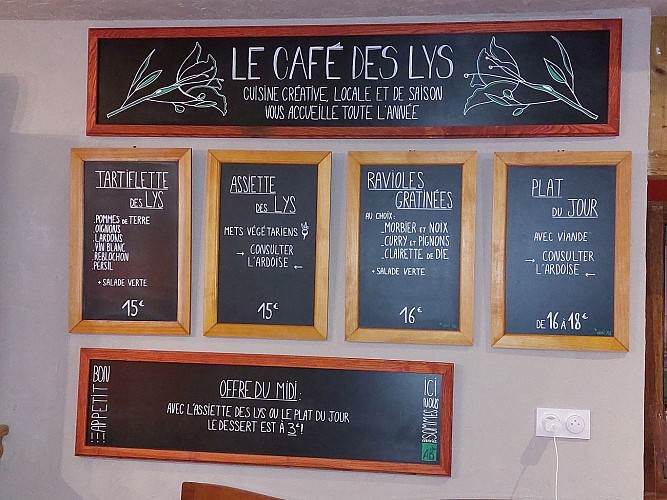 LE CAFÉ DES LYS
CUISINE CRÉATIVE, LOCALE ET DE SAISON
VOUS ACCUEILLE TOUTE L'ANNÉE
TARTIFLETTE
DES LYS
.POMMES DE TERRE
.OIGNONS
.LARDONS
.VIN BLANC
.REBLOCHON
.PERSIL
+ SALADE VERTE
15€
ASSIETTE
DES LYS
METS VÉGÉTARIENS
→ CONSULTER
L'ARDOISE ←
15€
RAVIOLES
GRATINÉES
AU CHOIX:
_MORBIER ET NOIX
_CURRY ET PIGNONS
_CLAIRETTE DE DIE
+ SALADE VERTE
16€
PLAT
DU JOUR
AVEC VIANDE
→ CONSULTER
L'ARDOISE ←
DE 16 À 18€
BON
APPÉTIT!!!
OFFRE DU MIDI:
AVEC L'ASSIETTE DES LYS OU LE PLAT DU JOUR
LE DESSERT EST À 3€!
ICI
NOUS
SOMMES
AB